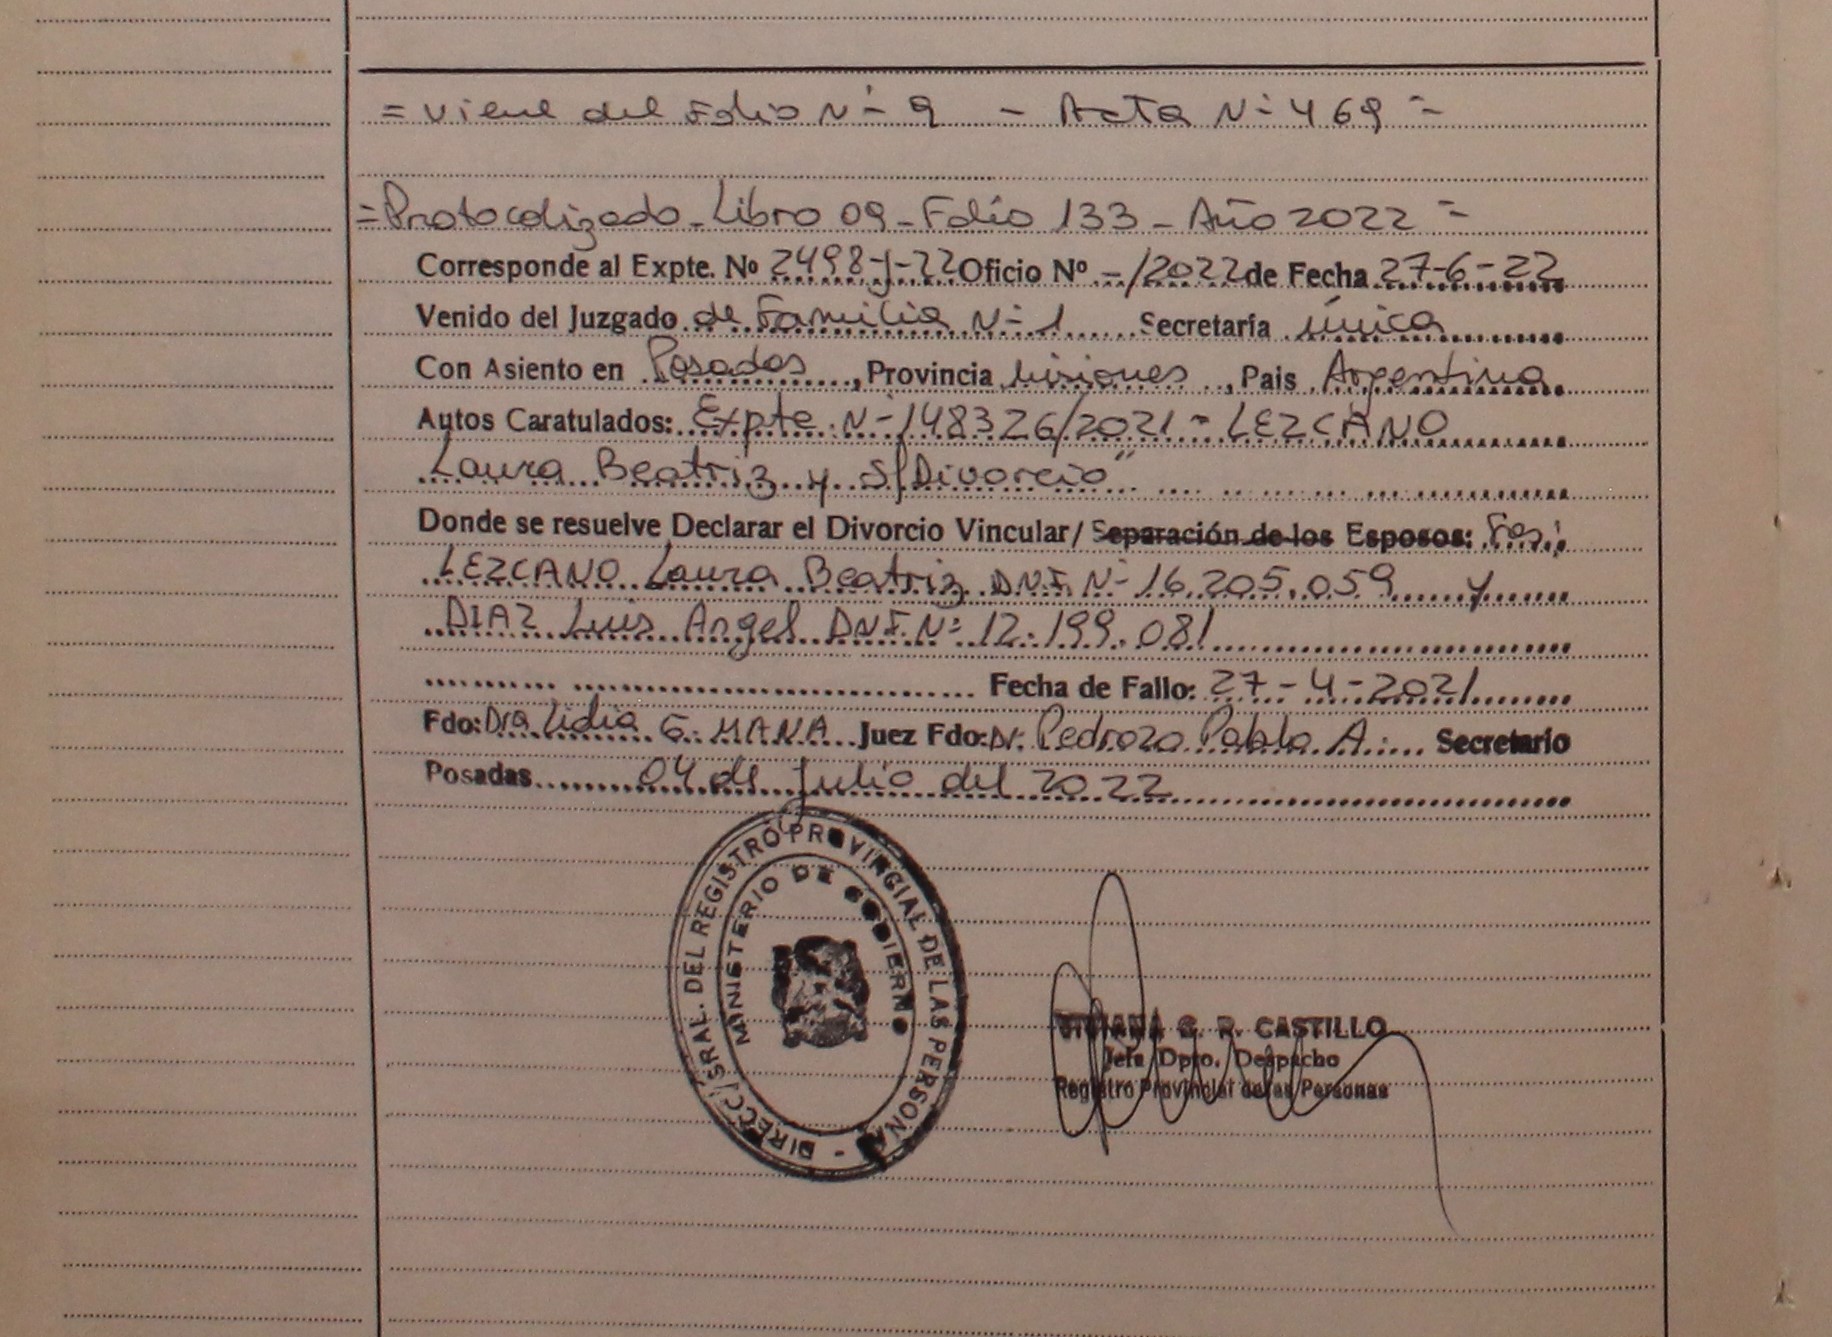 = Viene del Folio Nº 9 - Acta Nº 469 =
= Protocolizado - Libro 09 - Folio 133 - Año 2022 =
Corresponde al Expte. Nº 2498-J-22 Oficio Nº -/2022 de Fecha 27-6-22
Venido del Juzgado de Familia Nº 1 Secretaría única
Con Asiento en Posadas, Provincia Misiones, Pais Argentina
Autos Caratulados: Expte Nº 148326/2021 = LEZCANO
Laura Beatriz y S/Divorcio"
Donde se resuelve Declarar el Divorcio Vincular/ Separación de los Esposos:
LEZCANO Laura Beatriz D.N.I. Nº 16.205.059 y
DIAZ Luis Angel D.N.I. Nº 12.199.081
Fecha de Fallo: 27-4-2021
Fdo: Dra Lidia G. MANA Juez Fdo: Dr. Pedrozo Pablo A. Secretario
Posadas 04 de Julio del 2022
DIRECC. GRAL. DEL REGISTRO PROVINCIAL DE LAS PERSONAS -
MINISTERIO DE GOBIERNO
VIVIANA G. R. CASTILLO
Jefa Dpto. Despacho
Registro Provincial de las Personas